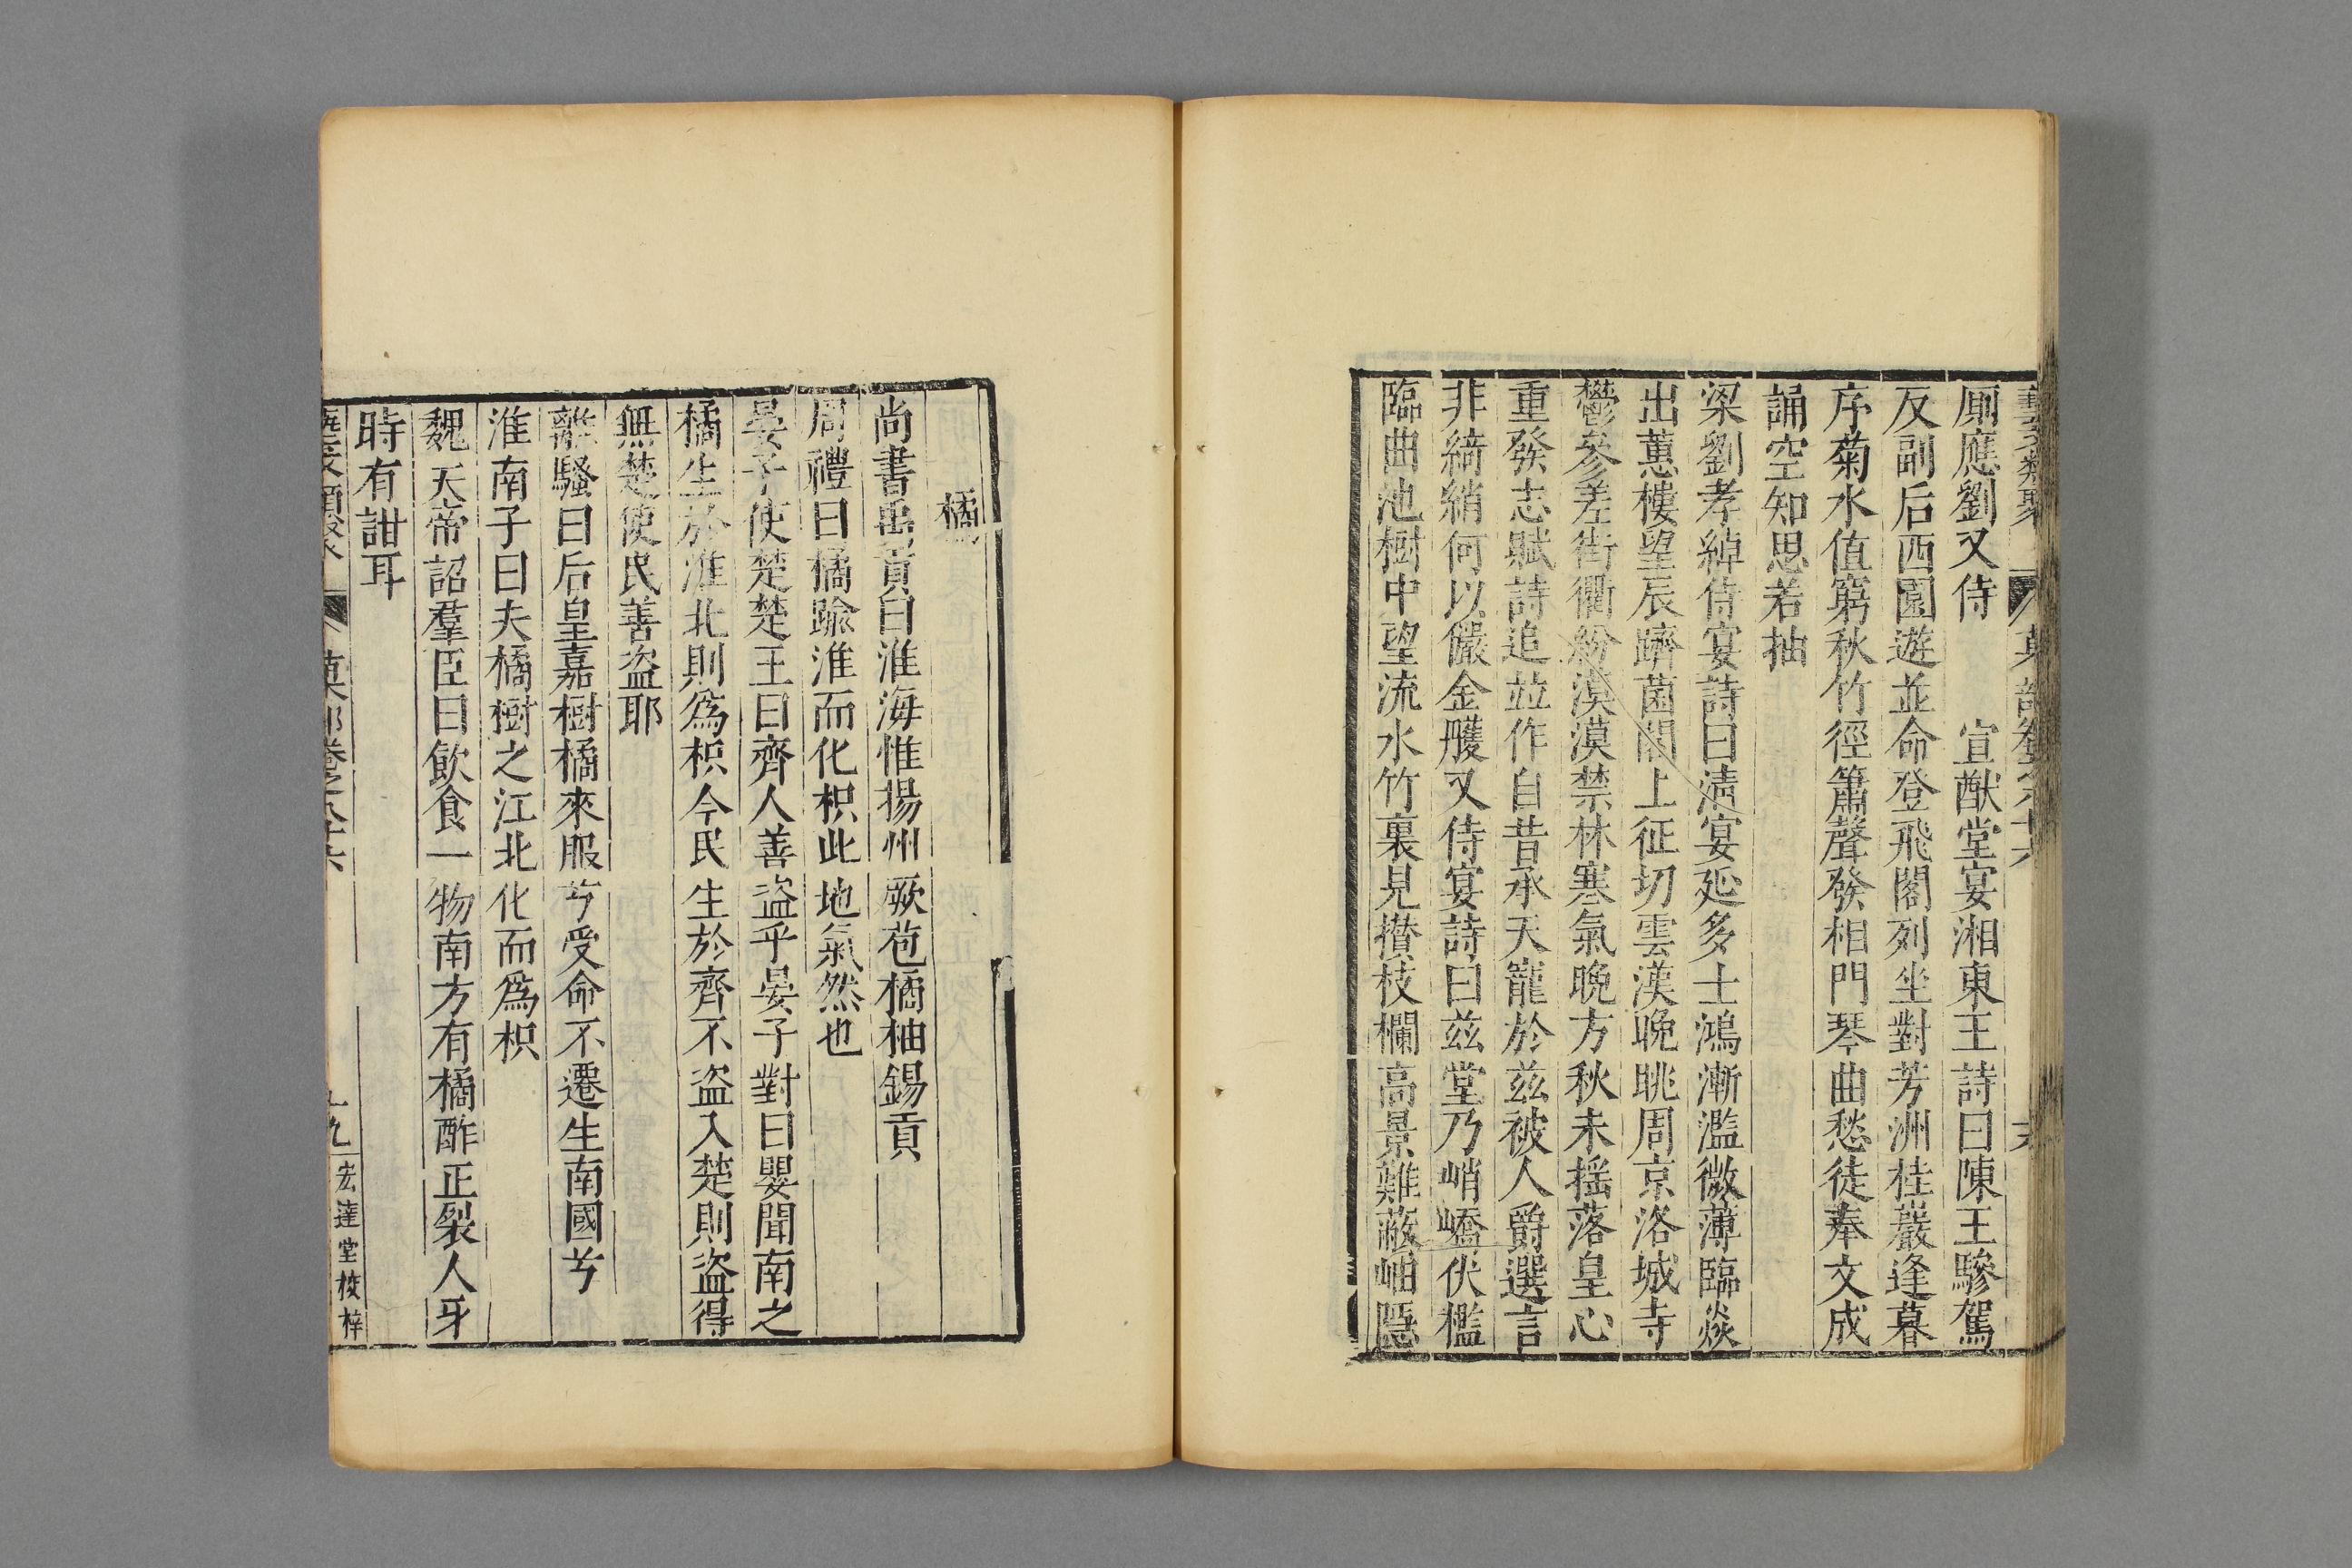 廁應劉又侍　宣猷堂宴湘東王詩曰陳王驂駕
反副后西園遊並命登飛閣列坐對芳洲桂巖逢暮
序菊水值窮秋竹徑簫聲發相門琴曲愁徒奉文成
誦空知思若抽
梁劉孝綽侍宴詩曰清宴延多士鴻漸濫微薄臨焱
出蕙樓望辰躋菌閣上征切雲漢晚眺周京洛城寺
鬱參差街衢紛漠漠禁林寒氣晚方秋未摇落皇心
重發志賦詩追並作自昔承天寵於茲被人爵選言
非綺綃何以儷金雘又侍宴詩曰茲堂乃峭嶠伏檻
臨曲池樹中望流水竹裏見攅枝欄高景難蔽岫隱
橘
尚書禹貢曰淮海惟揚州厥苞橘柚錫貢
周禮曰橘踰淮而化枳此地氣然也
晏子使楚楚王曰齊人善盜乎晏子對曰嬰聞南之
橘生於淮北則為枳今民生於齊不盜入楚則盜得
無楚使民善盜耶
離騷曰后皇嘉樹橘來服兮受命不遷生南國兮
淮南子曰夫橘樹之江北化而為枳
魏天帝詔羣臣曰飲食一物南方有橘酢正裂人牙
時有甜耳
宏達堂校梓